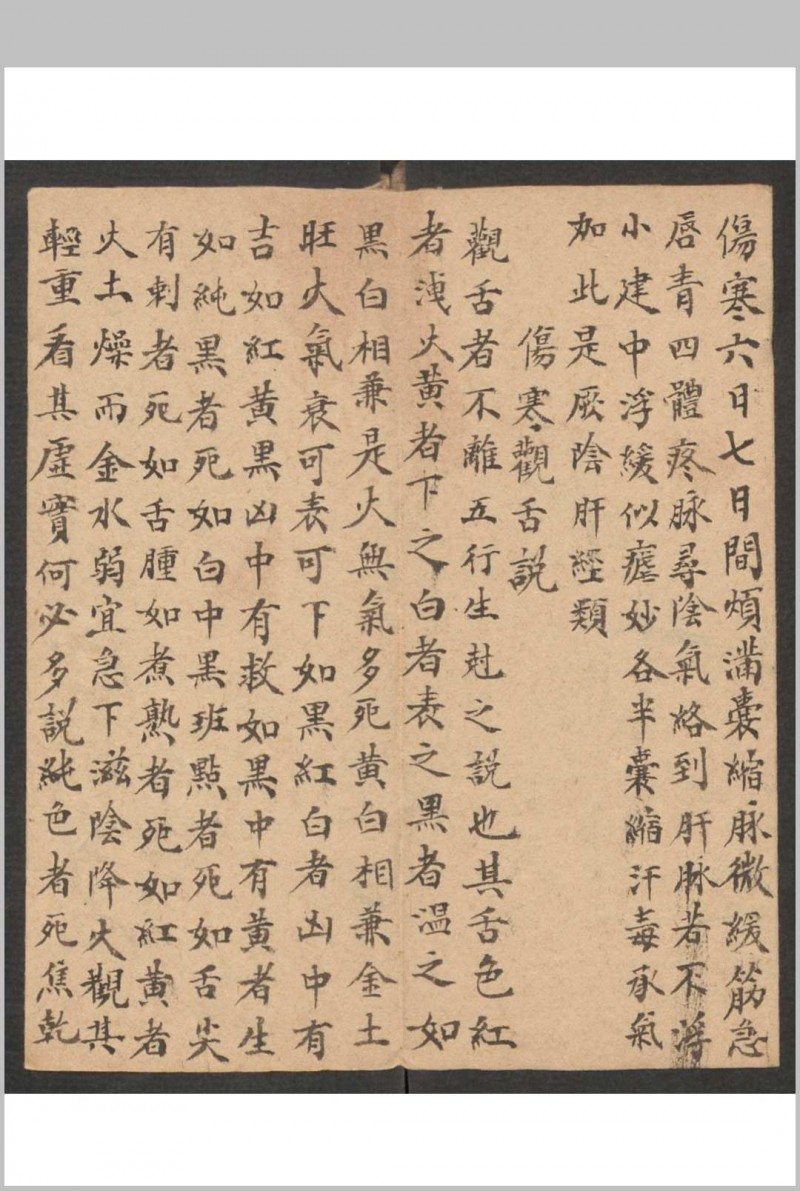 傷寒六日七日間煩滿囊縮脉微緩筋急
唇青四體疼脉尋陰氣絡到肝脉若不浮
小建中浮緩似瘧妙各半囊縮汗毒承氣
加此是厥陰肝經類
傷寒觀舌説
觀舌者不離五行生尅之説也其舌色紅
者浅火黄者下之白者表之黑者温之如
黑白相兼是火無氣多死黄白相兼金土
旺火氣衰可表可下如黑紅白者凶中有
吉如紅黄黑凶中有救如黑中有黄者生
如純黑者死如白中黑班點者死如舌尖
有刺者死如舌腫如煮熟者死如紅黄者
火土燥而金水弱宜急下滋陰降火觀其
輕重看其虚實何必多説純色者死焦乾